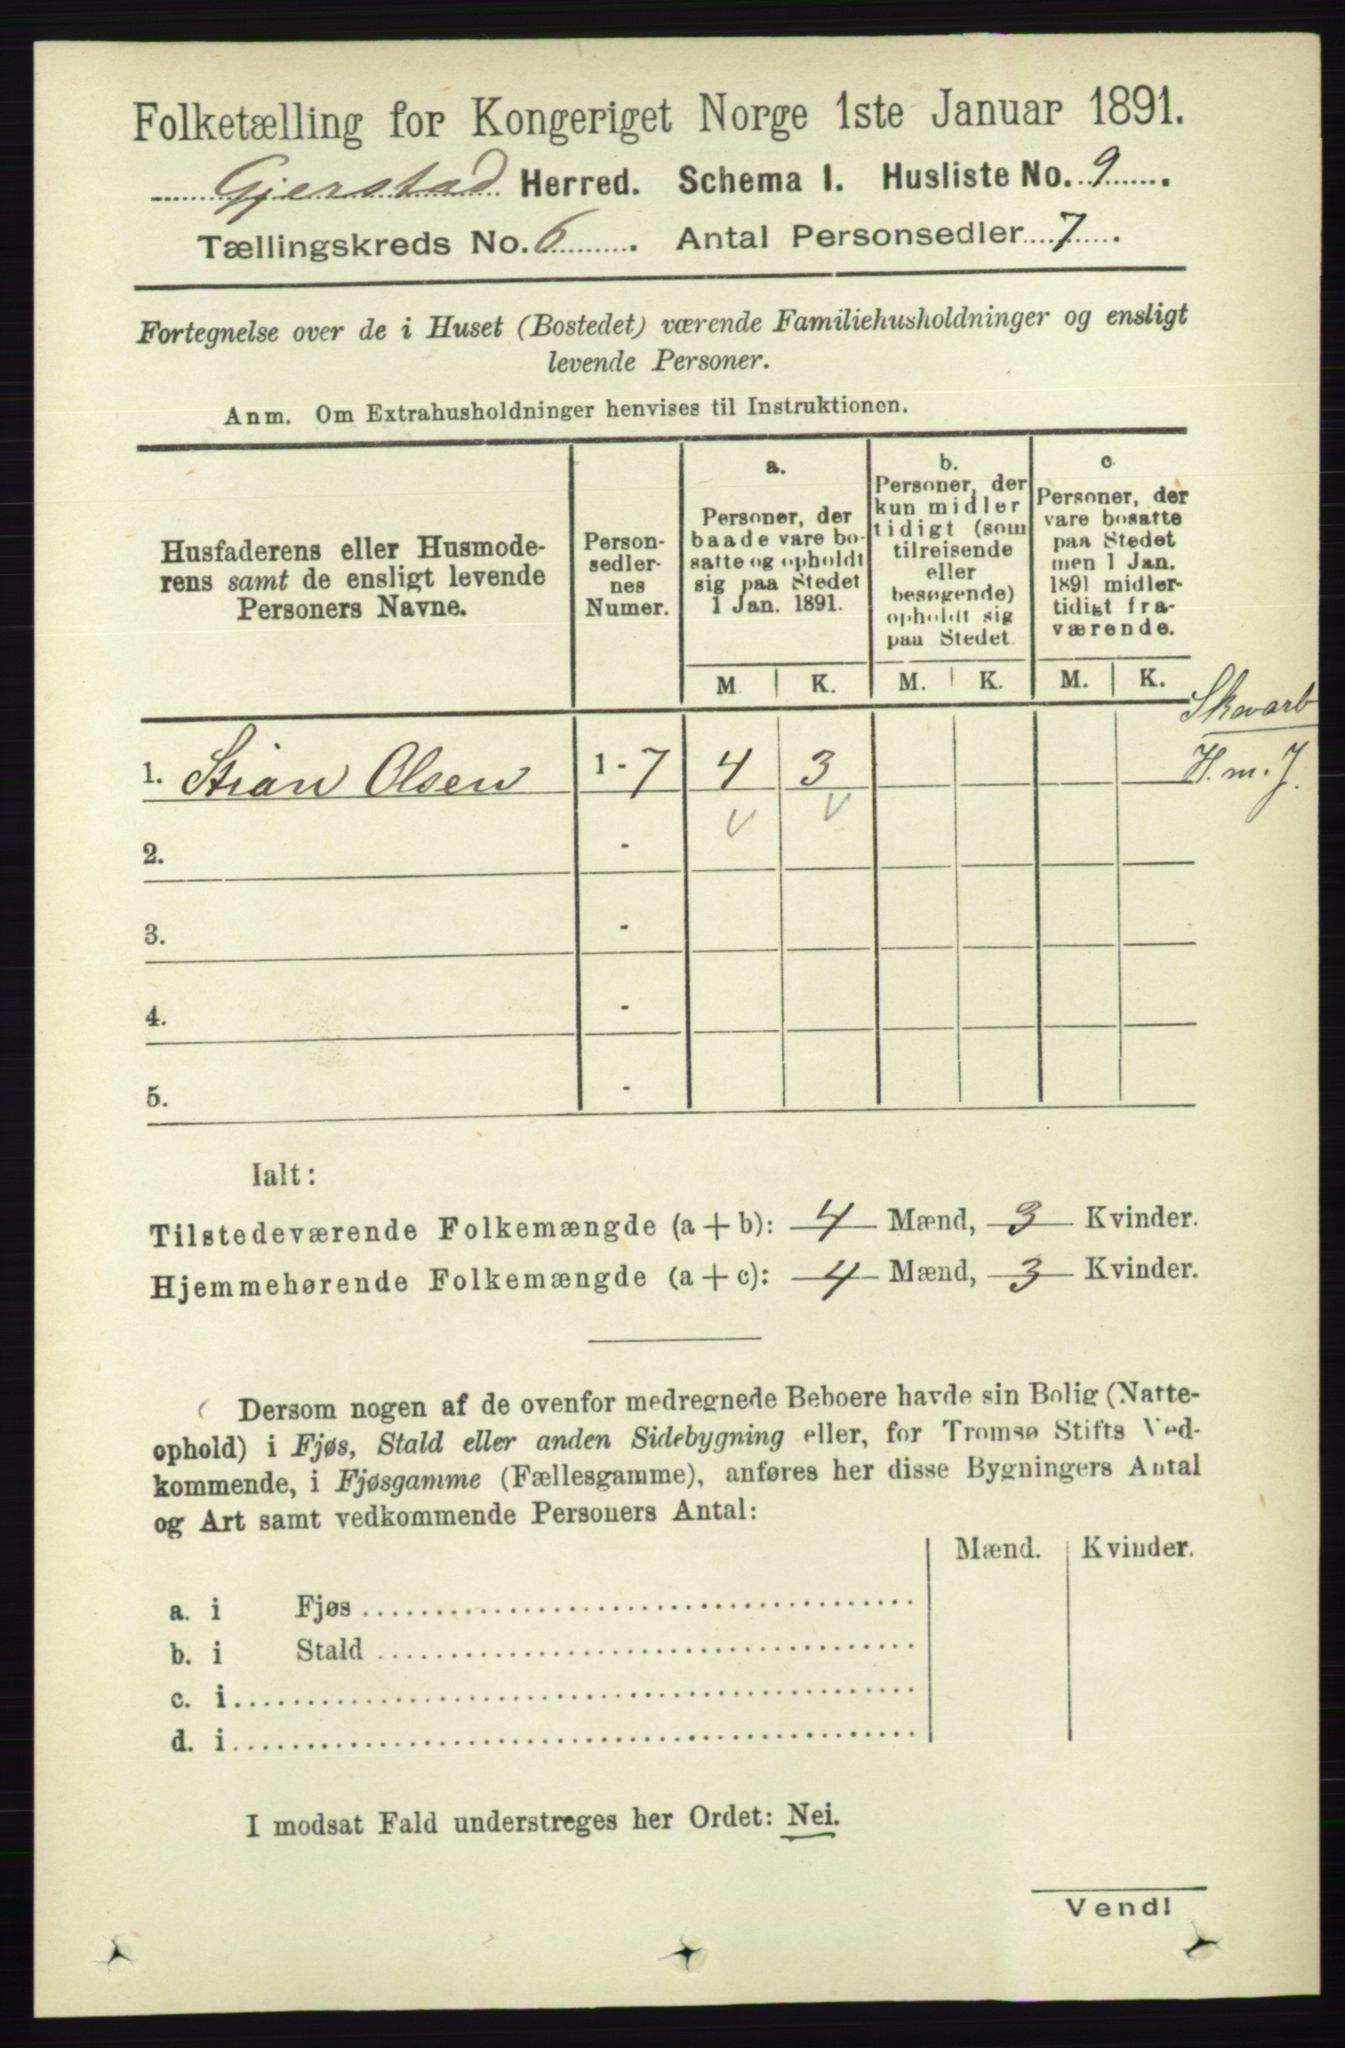 Folketælling for Kongeriget Norge 1ste Januar 1891.
Gjerstad Herred. Schema I. Husliste No. 9.
Tællingskreds No. 6. Antal Personsedler 7.
Fortegnelse over de i Huset (Bostedet) værende Familiehusholdninger og ensligt
levende Personer.
Anm. Om Extrahusholdninger henvises til Instruktionen.
Husfaderens eller Husmode-
rens samt de ensligt levende
Personers Navne.
Person-
sedler-
nes
Numer.
a.
Personer, der
baade vare bo-
satte og opholdt
sig paa Stedet
1 Jan. 1891.
b.
Personer, der
kun midler
tidigt (som
tilreisende
eller
besøgende)
opholdt sig
paa Stedet.
c
Personer, der
vare bosatte
paa Stedet
men 1 Jan.
1891 midler-
tidigt fra-
værende.
M. K. M. K. M. K.
Skovarb
1. Stian Olsen 1 - 7 4 3 H. m. J.
2. -
3. -
4. -
5. -
Ialt:
Tilstedeværende Folkemængde (a + b): 4 Mænd, 3 Kvinder.
Hjemmehørende Folkemængde (a + c): 4 Mænd, 3 Kvinder.
Dersom nogen af de ovenfor medregnede Beboere havde sin Bolig (Natte-
ophold) i Fjøs, Stald eller anden Sidebygning eller, for Tromsø Stifts Ved-
kommende, i Fjøsgamme (Fællesgamme), anføres her disse Bygningers Antal
og Art samt vedkommende Personers Antal:
Mænd. Kvinder.
a. i Fjøs
b. i Stald
c. i
d. i
I modsat Fald understreges her Ordet: Nei.
Vend!